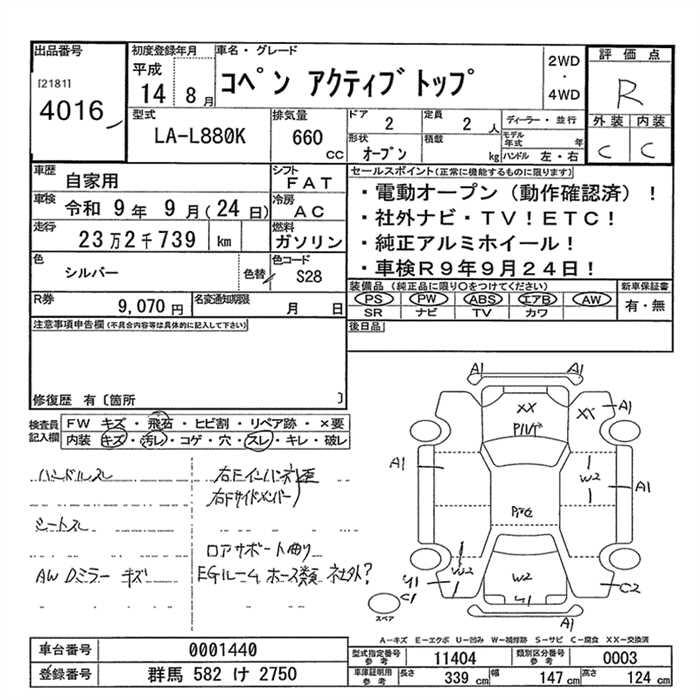 出品番号
[2181]
4016
初度登録年月
平成
14 8月
車名・グレード
コペン アクティブトップ
2WD
・
4WD
評価点
R
外装 内装
C C
型式
LA-L880K
排気量
660 CC
ドア 2
定員 2 人
形状 オープン
積載 kg
ディーラー・並行
モデル年式 年
ハンドル 左・右
車歴 自家用
シフト FAT
車検 令和 9年 9月(24日)
冷房 AC
走行 23万2千739 km
燃料 ガソリン
色 シルバー
色替
色コード S28
R券 9,070円
名変通知期限 月 日
セールスポイント(正常に機能するものに限ります)
・電動オープン(動作確認済)!
・社外ナビ・TV!ETC!
・純正アルミホイール!
・車検R9年9月24日!
装備品(純正品に限り〇をつけてください)
PS PW ABS エアB AW
SR ナビ TV カワ
新車保証書
有・無
後日品
注意事項申告欄(不具合内容等は具体的に記入して下さい)
修復歴 有〔箇所 〕
検査員記入欄
FW キズ・飛石・ヒビ割・リペア跡・×要
内装 キズ・汚レ・コゲ・穴・スレ・キレ・破レ
ハンドルスレ
シートスレ
AW Dミラー キズ
右Fインパネ歪
右Fサイドメンバー
ロアサポート曲り
EGルーム ホース類 社外?
A1 A1
XX XX A1
A1
W2
A1
W2
W2
Y1
C1
Y1
C2
A1
スペア
A-キズ E-エクボ U-凹み W-補修跡 S-サビ C-腐食 XX-交換済
車台番号 0001440
登録番号 群馬 582 け 2750
型式指定番号 参考 11404
類別区分番号 参考 0003
車庫証明用 参考 長さ 339 cm 幅 147 cm 高さ 124 cm